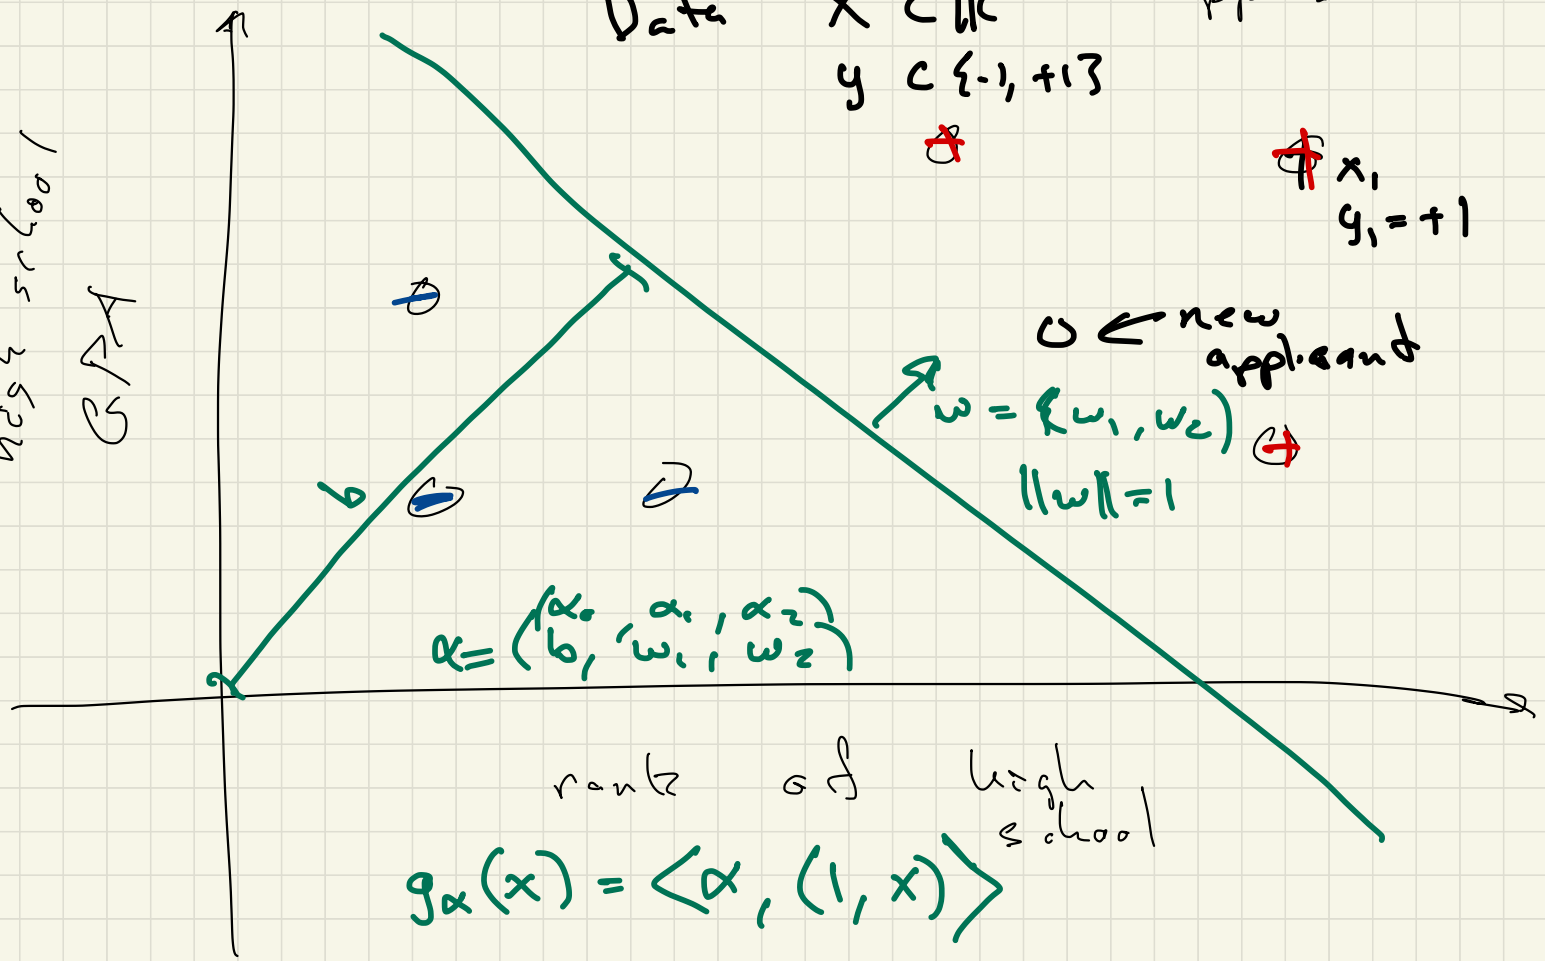 Data X ⊂ ℝ
y ⊂ {-1, +1}
x₁
y₁ = +1
high school
GPA
0 ← new
applicant
w = (w₁, w₂)
||w|| = 1
b
α = (α₀, α₁, α₂)
(b, w₁, w₂)
rank of high
school
g_α(x) = <α, (1, x)>